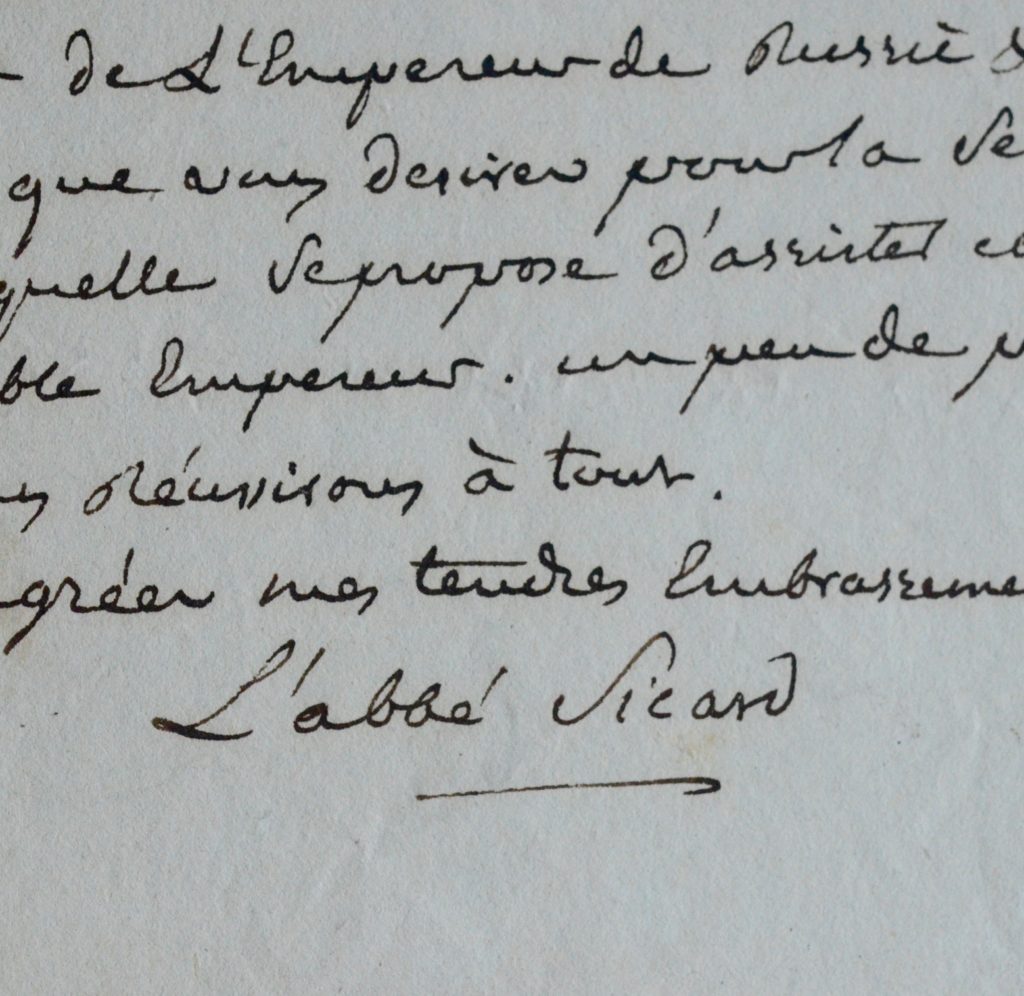 de L'Empereur de Russie &
que vous desirez pour la Se
quelle se propose d'assister ce
ble Empereur. un peu de p
réussirons à tout.
agréer mes tendres Embrasseme
L'abbé Sicard